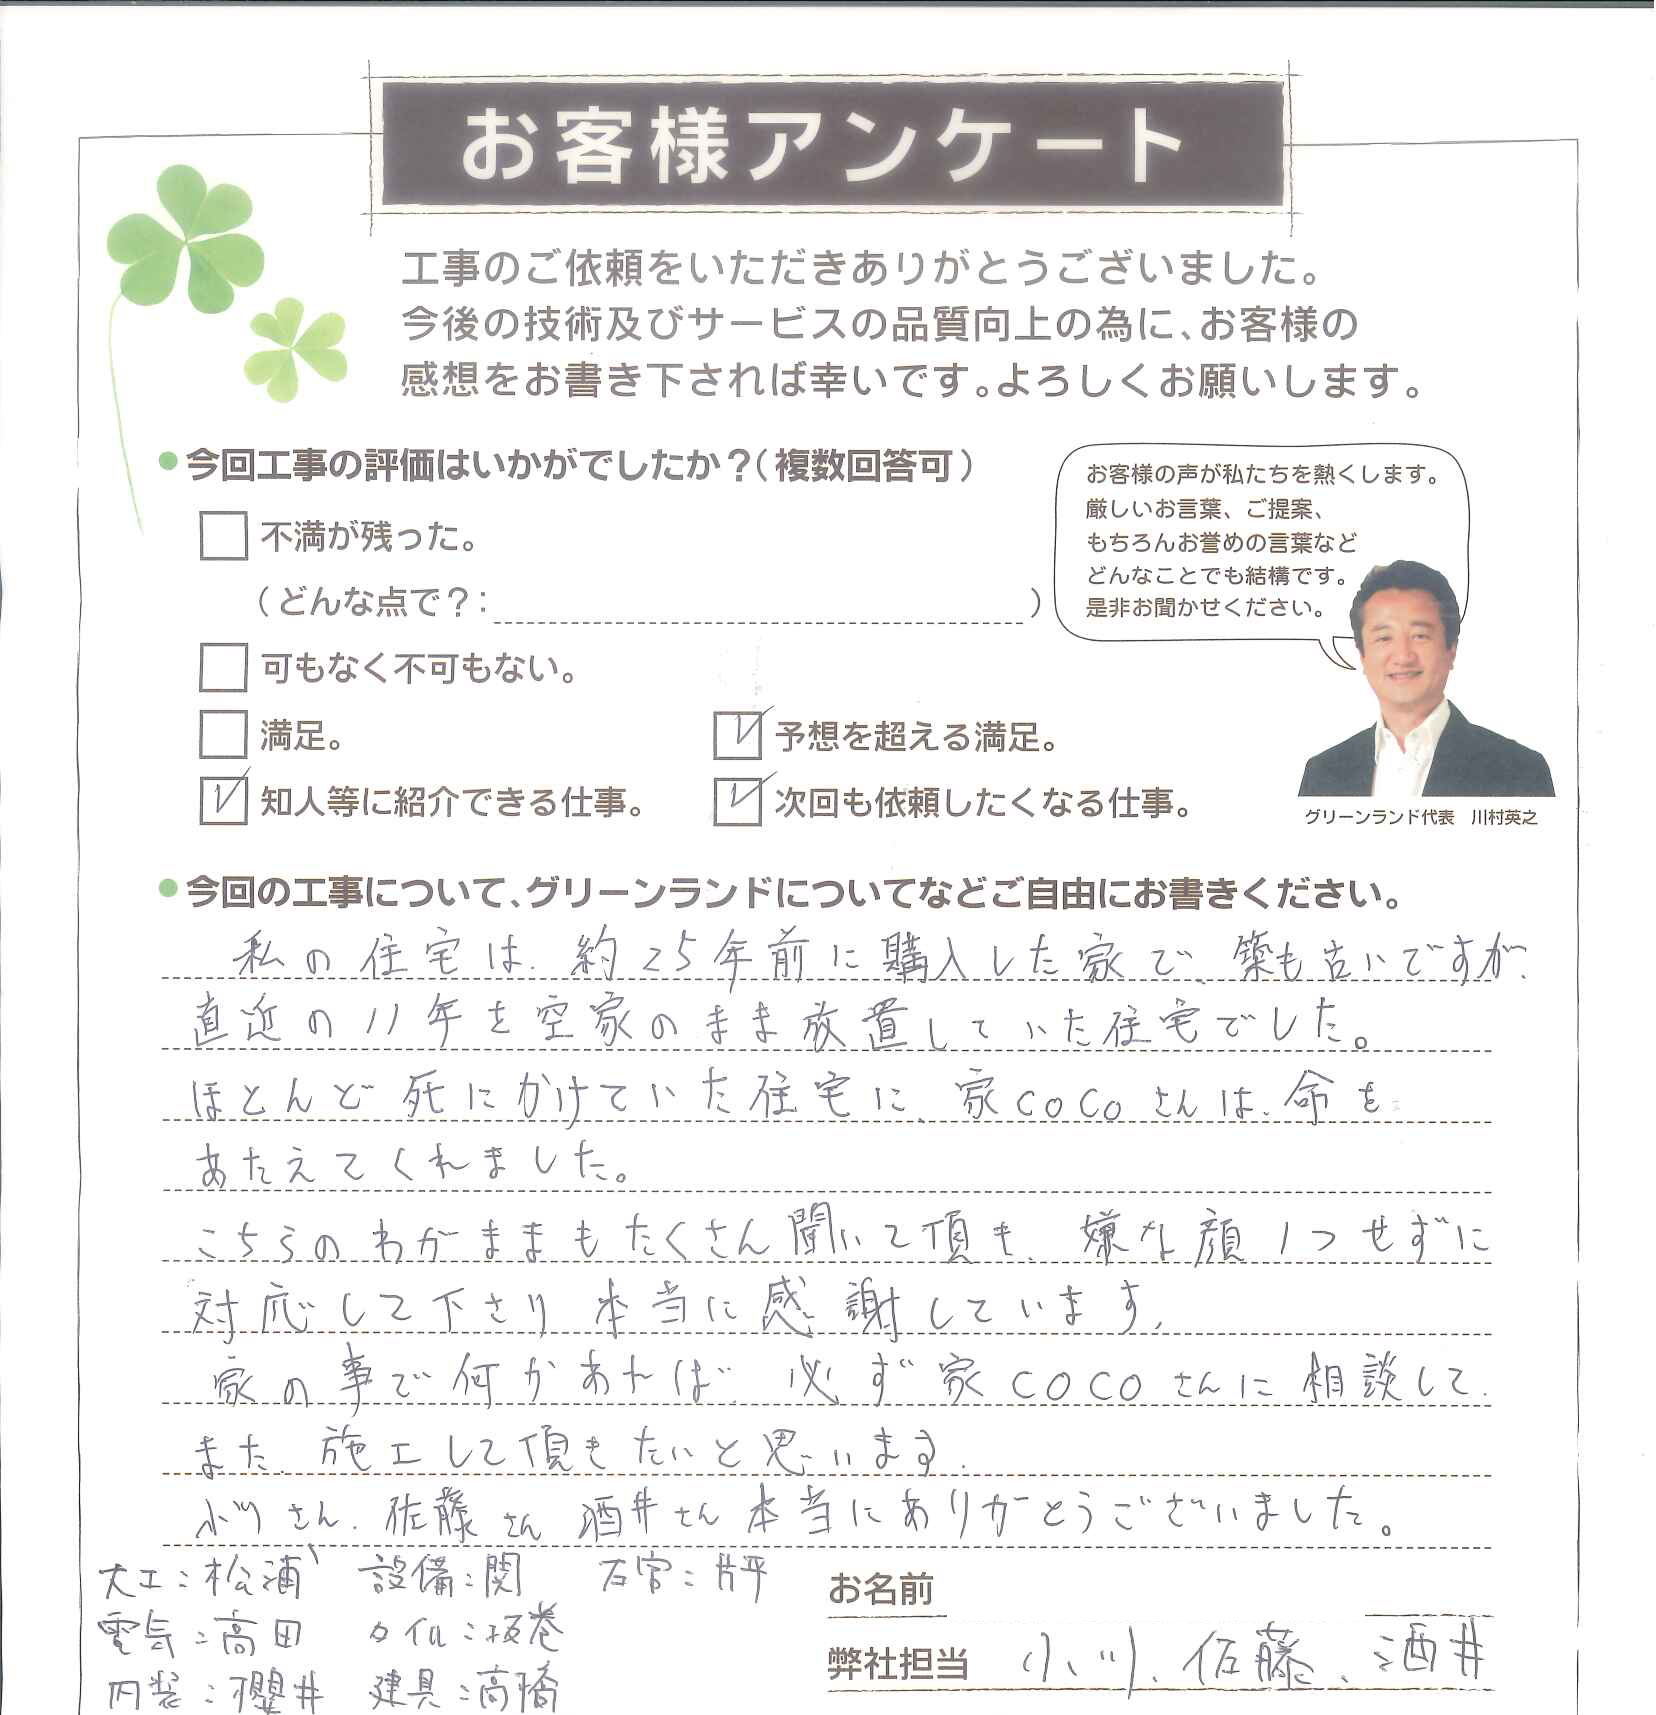 お客様アンケート
工事のご依頼をいただきありがとうございました。
今後の技術及びサービスの品質向上の為に、お客様の
感想をお書き下されば幸いです。よろしくお願いします。
今回工事の評価はいかがでしたか?(複数回答可)
不満が残った。
(どんな点で?: )
可もなく不可もない。
満足。
予想を超える満足。
知人等に紹介できる仕事。
次回も依頼したくなる仕事。
お客様の声が私たちを熱くします。
厳しいお言葉、ご提案、
もちろんお誉めの言葉など
どんなことでも結構です。
是非お聞かせください。
グリーンランド代表 川村英之
今回の工事について、グリーンランドについてなどご自由にお書きください。
私の住宅は、約25年前に購入した家で、築も古いですが、
直近の11年を空家のまま放置していた住宅でした。
ほとんど死にかけていた住宅に、家COCOさんは、命を
あたえてくれました。
こちらのわがままもたくさん聞いて頂き、嫌な顔1つせずに
対応して下さり本当に感謝しています。
家の事で何かあれば、必ず家COCOさんに相談して、
また、施工して頂きたいと思います。
小川さん、佐藤さん、酒井さん本当にありがとうございました。
大工:松浦 設備:関 左官:片平
電気:高田 タイル:坂巻
内装:櫻井 建具:高橋
お名前
弊社担当 小川、佐藤、酒井